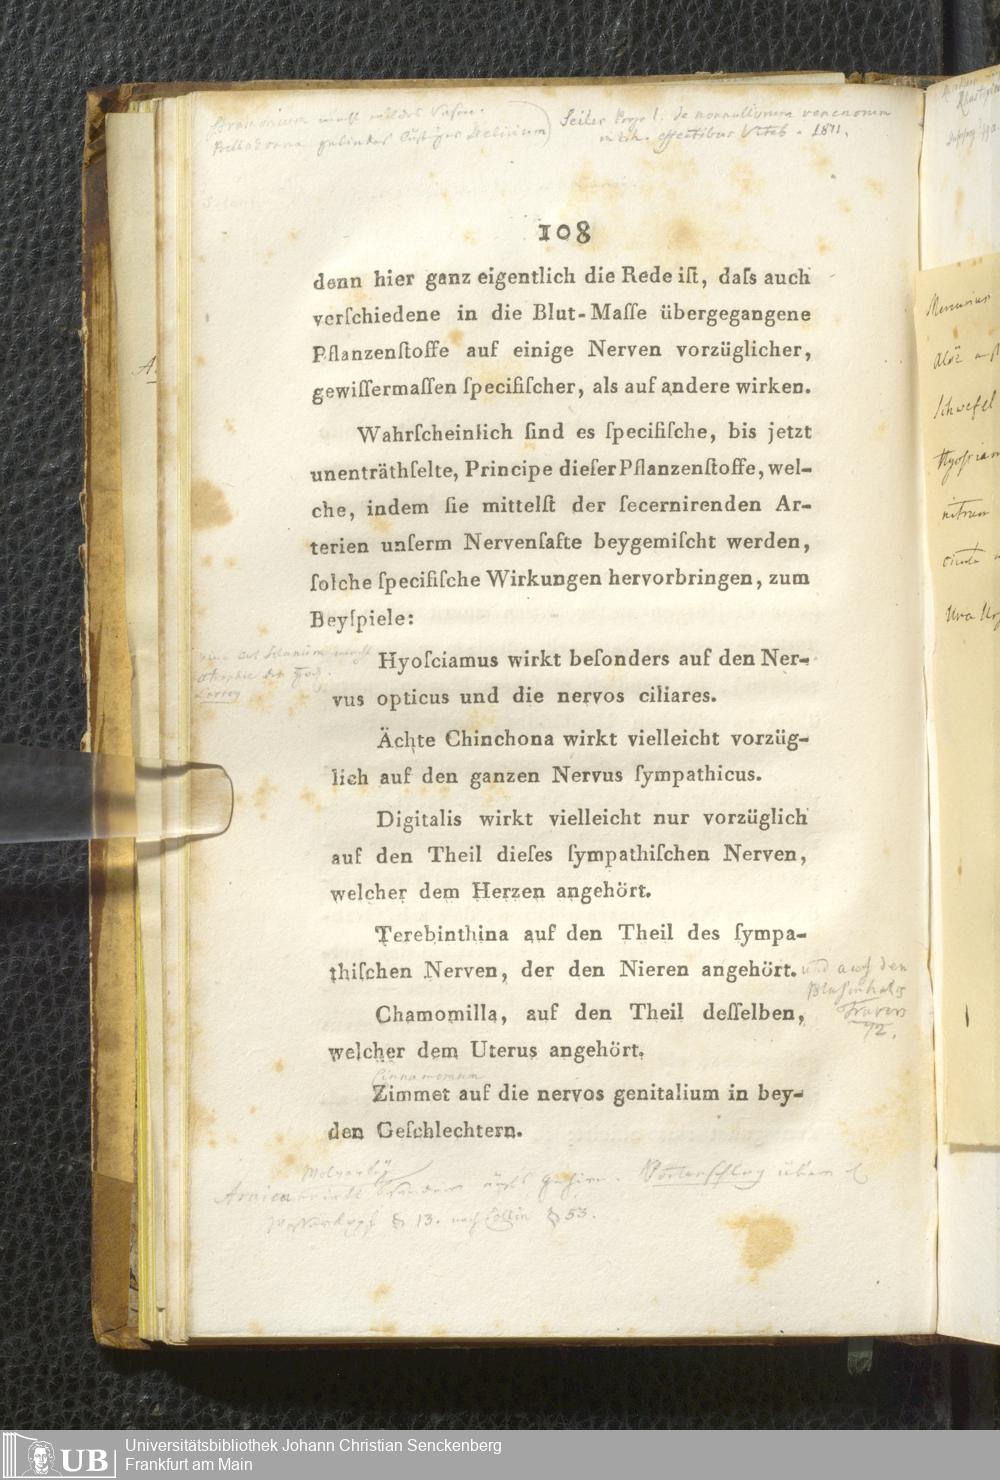 Seiler Progr 1. de nonnullorum venenorum
effectibus Viteb. 1811.
Belladonna gelindes lustiges Delirium
108
denn hier ganz eigentlich die Rede iſt, daſs auch
verſchiedene in die Blut-Maſſe übergegangene
Pflanzenſtoffe auf einige Nerven vorzüglicher,
gewiſſermaſſen ſpecifiſcher, als auf andere wirken.
Wahrſcheinlich ſind es ſpecifiſche, bis jetzt
unenträthſelte, Principe dieſer Pflanzenſtoffe, wel-
che, indem ſie mittelſt der ſecernirenden Ar-
terien unſerm Nervenſafte beygemiſcht werden,
ſolche ſpecifiſche Wirkungen hervorbringen, zum
Beyſpiele:
Hyoſciamus wirkt beſonders auf den Ner-
vus opticus und die nervos ciliares.
Ächte Chinchona wirkt vielleicht vorzüg-
lich auf den ganzen Nervus ſympathicus.
Digitalis wirkt vielleicht nur vorzüglich
auf den Theil dieſes ſympathiſchen Nerven,
welcher dem Herzen angehört.
Terebinthina auf den Theil des ſympa-
thiſchen Nerven, der den Nieren angehört.
und auf den
Blasenhals
Travers
72.
Chamomilla, auf den Theil deſſelben,
welcher dem Uterus angehört.
Cinnamomum
Zimmet auf die nervos genitalium in bey-
den Geſchlechtern.
Arnica
§ 13. nach Collin § 53.
Mercurius
Aloë
Schwefel
nitrum
Universitätsbibliothek Johann Christian Senckenberg
Frankfurt am Main
UB